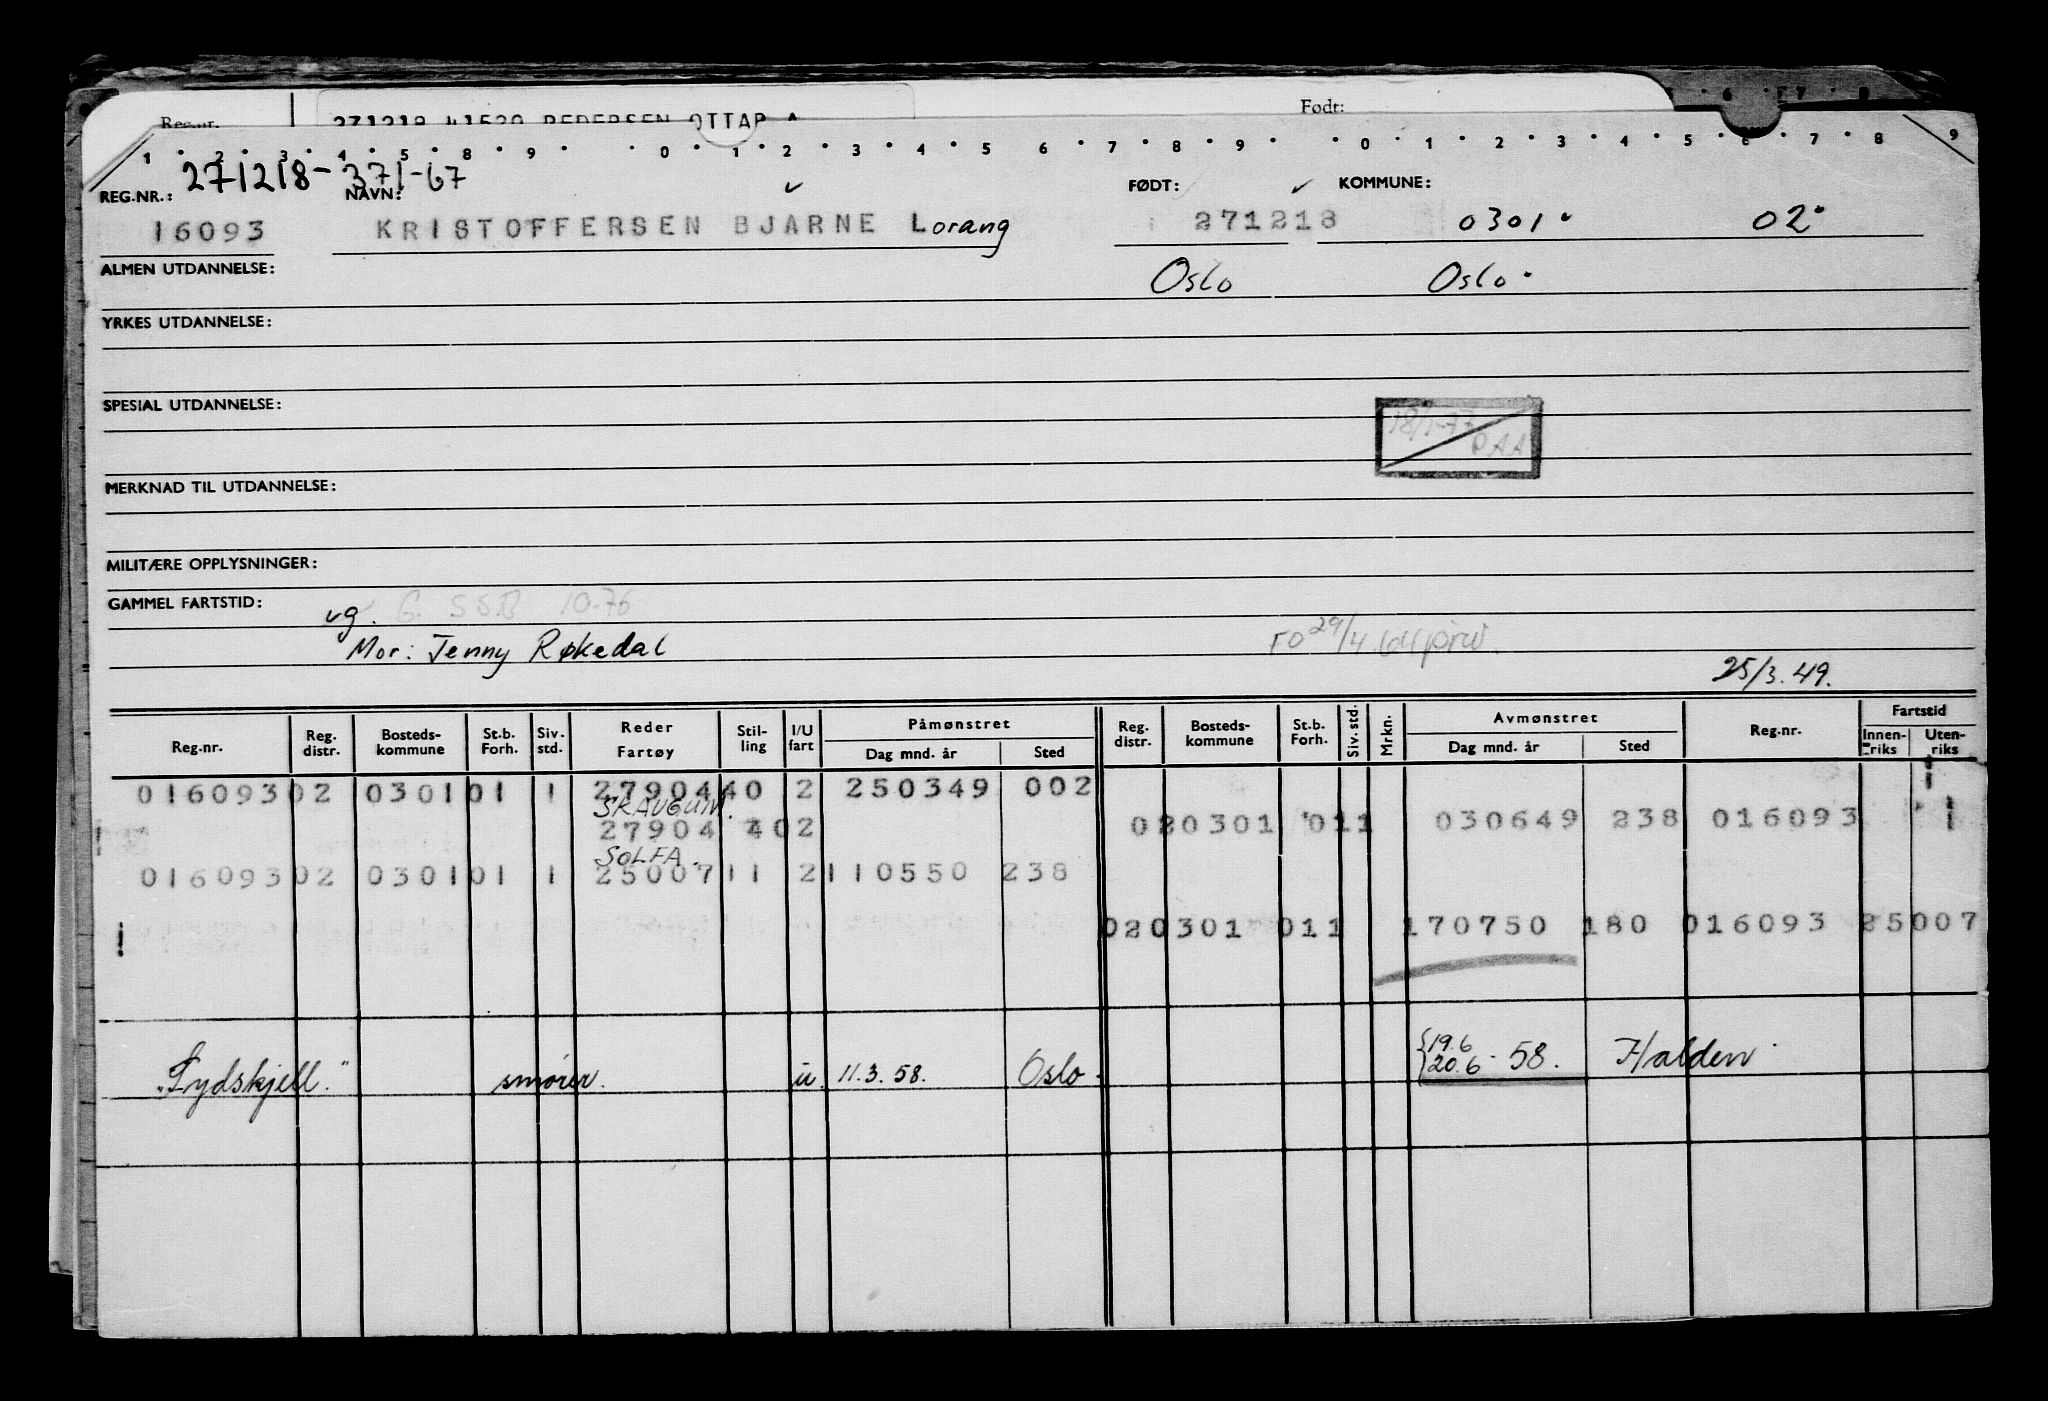 Reg.nr.
271218 41520 PEDERSEN OTTAR A
Født:
6 7 8
1 2 3 4 5 8 9 0 1 2 3 4 5 6 7 8 9 0 1 2 3 4 5 6 7 8 9
271218-371-67
REG.NR.: NAVN: FØDT: KOMMUNE:
16093 KRISTOFFERSEN BJARNE Lorang 271218 0301 02
ALMEN UTDANNELSE: Oslo Oslo
YRKES UTDANNELSE:
SPESIAL UTDANNELSE:
18/1-77 OAA
MERKNAD TIL UTDANNELSE:
MILITÆRE OPPLYSNINGER:
GAMMEL FARTSTID: vg. G. SSB 10-76
Mor: Jenny Røkedal FO 29/4.64
25/3.49.
Reg.nr. Reg. distr. Bosteds-kommune St.b. Forh. Siv. std. Reder Fartøy Stil-ling I/U fart Påmønstret Dag mnd. år Sted Reg. distr. Bosteds-kommune St.b. Forh. Siv. std. Mrkn. Avmønstret Dag mnd. år Sted Reg.nr. Fartstid Innen-riks Uten-riks
016093 02 0301 01 1 27904 40 2 250349 002
SKAUGUM.
27904 402 02 0301 011 030649 238 016093
SOLFA.
016093 02 0301 01 1 25007 11 2 110550 238
02 0301 011 170750 180 016093 25007
"Sydskjell." smører. u. 11.3.58. Oslo. {19.6 20.6 58. Halden